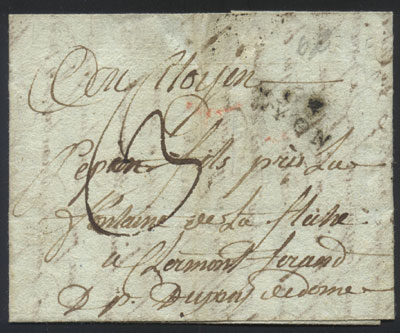 Au Citoyen
Pepin fils près La
fontaine de La flèche
a Clermont ferand
D p. Dupuis dedome
LYON